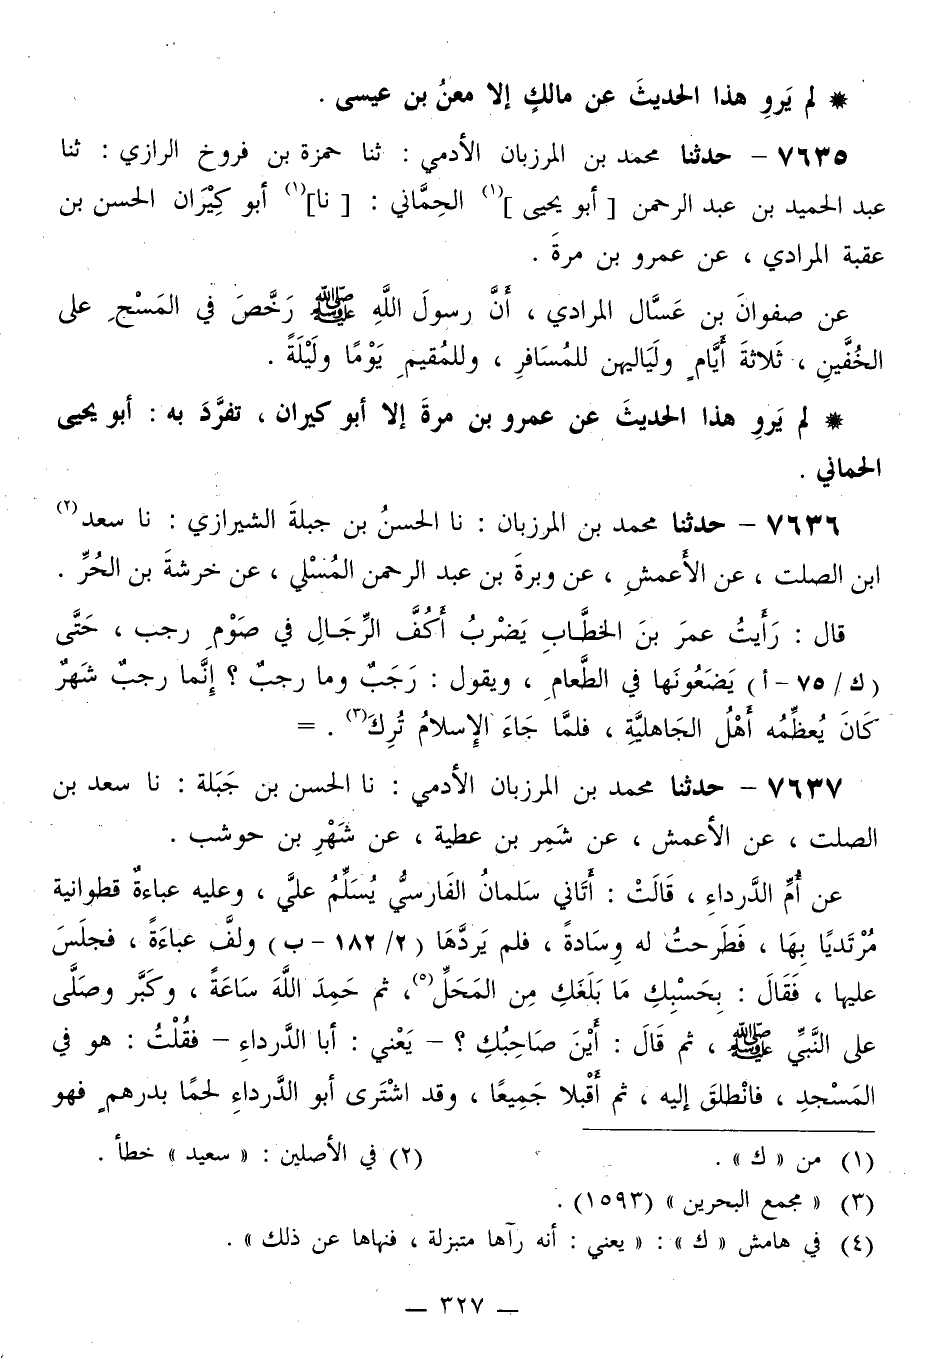 * لم يَروِ هذا الحديثَ عن مالكٍ إلا معنُ بن عيسى .
٧٦٣٥ - حدثنا محمد بن المرزبان الأدمي : ثنا حمزة بن فروخ الرازي : ثنا
عبد الحميد بن عبد الرحمن [ أبو يحيى ](١) الحِمَّاني : [ نا](١) أبو كِيْرَان الحسن بن
عقبة المرادي ، عن عمرو بن مرةَ .
عن صفوانَ بن عَسَّال المرادي ، أَنَّ رسولَ اللَّهِ ﷺ رَخَّصَ في المَسْحِ على
الخُفَّينِ ، ثَلاثةَ أَيَّامٍ ولَيَاليهن للمُسَافرِ ، وللمُقيمِ يَوْمًا ولَيْلَةً .
* لم يَروِ هذا الحديثَ عن عمرو بن مرةَ إلا أبو كيران ، تفرَّدَ به : أبو يحيى
الحماني .
٧٦٣٦ - حدثنا محمد بن المرزبان : نا الحسنُ بن جبلةَ الشيرازي : نا سعد(٢)
ابن الصلت ، عن الأَعمشِ ، عن وبرةَ بن عبد الرحمن المُسْلي ، عن خرشةَ بن الحُرِّ .
قال : رَأَيتُ عمرَ بنَ الخطَّابِ يَضْربُ أَكُفَّ الرِّجَالِ في صَوْمِ رجب ، حَتَّى
(ك/ ٧٥ - أ) يَضَعُونَها في الطَّعامِ ، ويقول : رَجَبٌ وما رجبٌ ؟ إِنَّما رجبٌ شَهرٌ
كَانَ يُعظِّمُه أَهْلُ الجَاهليَّةِ ، فلمَّا جَاءَ الإِسلامُ تُرِكَ(٣) . =
٧٦٣٧ - حدثنا محمد بن المرزبان الأدمي : نا الحسن بن جَبَلة : نا سعد بن
الصلت ، عن الأعمش ، عن شَمِر بن عطية ، عن شَهْرِ بن حوشب .
عن أُمِّ الدَّرداءِ ، قَالَتْ : أَتَاني سَلمانُ الفَارسيُّ يُسَلِّمُ عليَّ ، وعليه عباءةٌ قطوانية
مُرْتَديًا بِهَا ، فَطَرحتُ له وِسَادةً ، فلم يَردَّهَا (٢/ ١٨٢ - ب) ولفَّ عباءَةً ، فجلَسَ
عليها ، فَقَالَ : بِحَسْبِكِ مَا بَلَغَكِ مِن المَحَلِّ(٥)، ثم حَمِدَ اللَّهَ سَاعَةً ، وكَبَّر وصلَّى
على النَّبيِّ ﷺ ، ثم قَالَ : أَيْنَ صَاحِبُكِ ؟ - يَعْني : أبا الدَّرداءِ - فقُلْتُ : هو في
المَسْجدِ ، فانْطلقَ إليه ، ثم أَقْبلا جَميعًا ، وقد اشْتَرى أبو الدَّرداءِ لحمًا بدرهمٍ فهو
(١) من « ك » . (٢) في الأصلين : « سعيد » خطأ .
(٣) « مجمع البحرين » (١٥٩٣) .
(٤) في هامش « ك » : « يعني : أنه رآها متبزلة ، فنهاها عن ذلك » .
— ٣٢٧ —